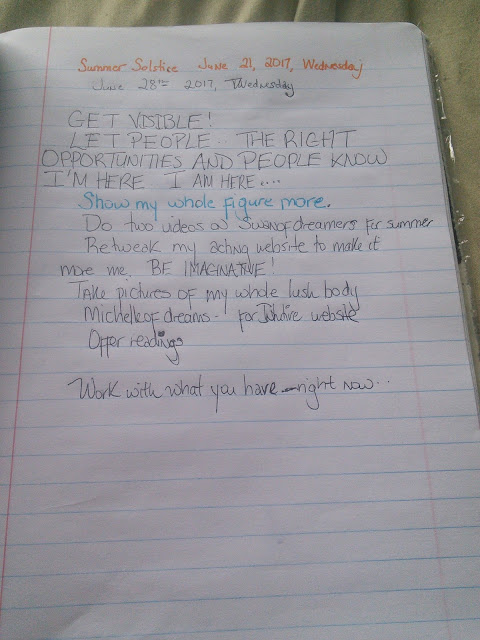 Summer Solstice June 21, 2017, Wednesday
June 28th 2017, Wednesday
GET VISIBLE!
LET PEOPLE.. THE RIGHT
OPPORTUNITIES AND PEOPLE KNOW
I'M HERE. I AM HERE....
Show my whole figure more.
Do two videos as Swanofdreamers for summer
Retweak my acting website to make it
more me. BE IMAGINATIVE!
Take pictures of my whole lush body
Michelle of dreams - for Intuitive website
Offer readings
Work with what you have - right now..